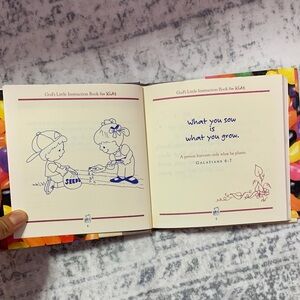 God's Little Instruction Book for Kids
SEEDS
God's Little Instruction Book for Kids
What you sow
is
what you grow.
A person harvests only what he plants.
GALATIANS 6:7